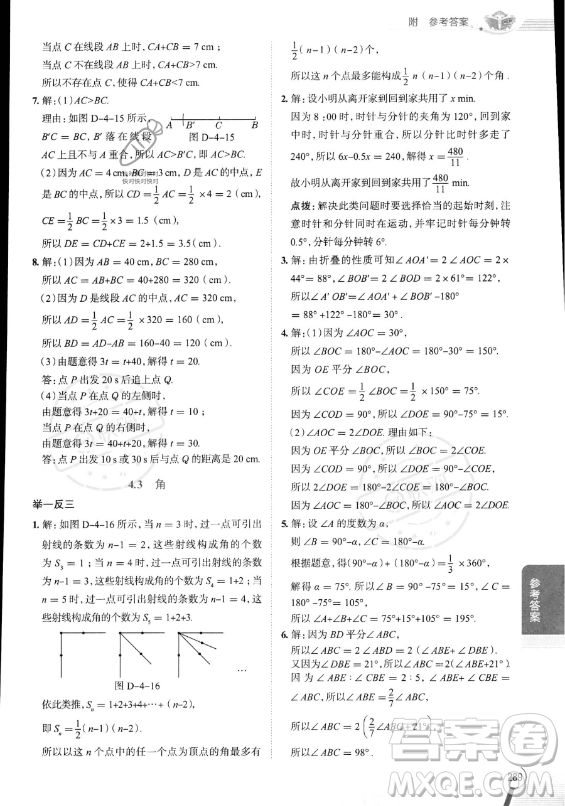 附 参考答案
当点 C 在线段 AB 上时，CA+CB = 7 cm；
当点 C 不在线段 AB 上时，CA+CB＞7 cm，
所以不存在点 C，使得 CA+CB = 6 cm.
7. 解：(1) AC>BC.
理由：如图 D-4-15 所示，
B′C = BC，B′ 落在线段
A B′ C B
图 D-4-15
AC 上且不与 A 重合，所以 AC>B′C，即 AC>BC.
(2)因为 AC = 4 cm，BC = 3 cm，D 是 AC 的中点，E
快对快对快对
是 BC 的中点，所以 CD = 1/2 AC = 1/2 × 4 = 2 (cm)，
CE = 1/2 BC = 1/2 × 3 = 1.5 (cm).
所以 DE = CD+CE = 2+1.5 = 3.5 (cm).
8. 解：(1)因为 AB = 40 cm，BC = 280 cm，
所以 AC = AB+BC = 40+280 = 320 (cm).
(2)因为 D 是线段 AC 的中点，AC = 320 cm，
所以 AD = 1/2 AC = 1/2 × 320 = 160 (cm).
所以 BD = AD-AB = 160-40 = 120 (cm).
(3)由题意得 3t = t+40，解得 t = 20.
答：点 P 出发 20 s 追上点 Q.
(4)当点 P 在点 Q 的左侧时，
由题意得 3t+20 = 40+t，解得 t = 10；
当点 P 在点 Q 的右侧时，
由题意得 3t = 20+40+t，解得 t = 30.
答：点 P 出发 10 s 或 30 s 后与点 Q 的距离是 20 cm.
4.3 角
举一反三
1. 解：如图 D-4-16 所示，当 n = 3 时，过一点可引出
射线的条数为 n-1 = 2，这些射线构成角的个数
为 S₃ = 1；当 n = 4 时，过一点可引出射线的条数
为 n-1 = 3，这些射线构成角的个数为 S₄ = 1+2；当
n = 5 时，过一点可引出射线的条数为 n-1 = 4，这
些射线构成角的个数为 S₅ = 1+2+3.
…
图 D-4-16
依此类推，Sₙ = 1+2+3+4+…+(n-2)，
即 Sₙ = 1/2 (n-1)(n-2).
所以以这 n 个点中的任一个点为顶点的角最多有
1/2 (n-1)(n-2) 个.
所以这 n 个点最多能构成 1/2 n (n-1)(n-2) 个角.
2. 解：设小明从离开家到回到家共用了 x min.
因为 8：00 时，时针与分针的夹角为 120°，回到家
中时，时针与分针重合，所以分针比时针多走了
240°，所以 6x-0.5x = 240，解得 x = 480/11.
故小明从离开家到回到家共用了 480/11 min.
点拨：解决此类问题时要选择恰当的起始时刻，注
意时针和分针同时在运动，并牢记时针每分钟转
0.5°，分针每分钟转 6°.
3. 解：由折叠的性质可知∠AOA′= 2∠AOC = 2×
44°= 88°，∠BOB′= 2∠BOD = 2×61°= 122°，
所以∠A′OB′=∠AOA′+∠BOB′-180°
= 88°+122°-180°= 30°.
4. 解：(1)因为∠AOC = 30°，
所以∠BOC = 180°-∠AOC = 180°-30°= 150°.
因为 OE 平分∠BOC，
所以∠COE = 1/2 ∠BOC = 1/2 ×150°= 75°.
所以∠DOE = 90°-∠COE = 90°-75°= 15°.
(2)∠AOC = 2∠DOE. 理由如下：
因为 OE 平分∠BOC，
所以∠BOC = 2∠COE.
所以∠AOC = 180°-∠BOC = 180°-2∠COE.
因为∠DOE = 90°-∠COE，
所以∠AOC = 2∠DOE.
5. 解：设∠A 的度数为 α，
则∠B = 90°-α，∠C = 180°-α.
根据题意，得(90°-α)+(180°-α)= 1/3 ×360°，
解得 α = 75°. 所以∠B = 15°，∠C = 105°.
所以∠A+∠B+∠C = 75°+15°+105°= 195°.
6. 解：因为 BD 平分∠ABC，
所以∠ABC = 2∠ABD = 2(∠ABE+∠DBE).
又因为∠DBE = 21°，所以∠ABC = 2(∠ABE+21°).
因为∠ABE：∠CBE = 2：5，所以∠ABE =
2/7 ∠ABC.
所以∠ABC = 2 (2/7 ∠ABC+21°).
所以∠ABC = 98°.
参考答案
289
答案圈
MXQE.COM